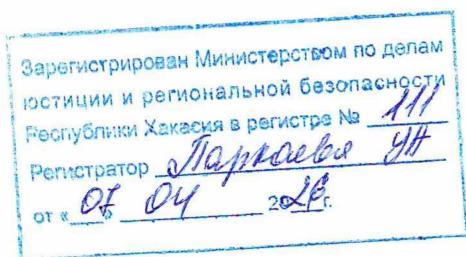 Зарегистрирован Министерством по делам
юстиции и региональной безопасности
Республики Хакасия в регистре № 111
Регистратор
от « 07 » 04 20 г.